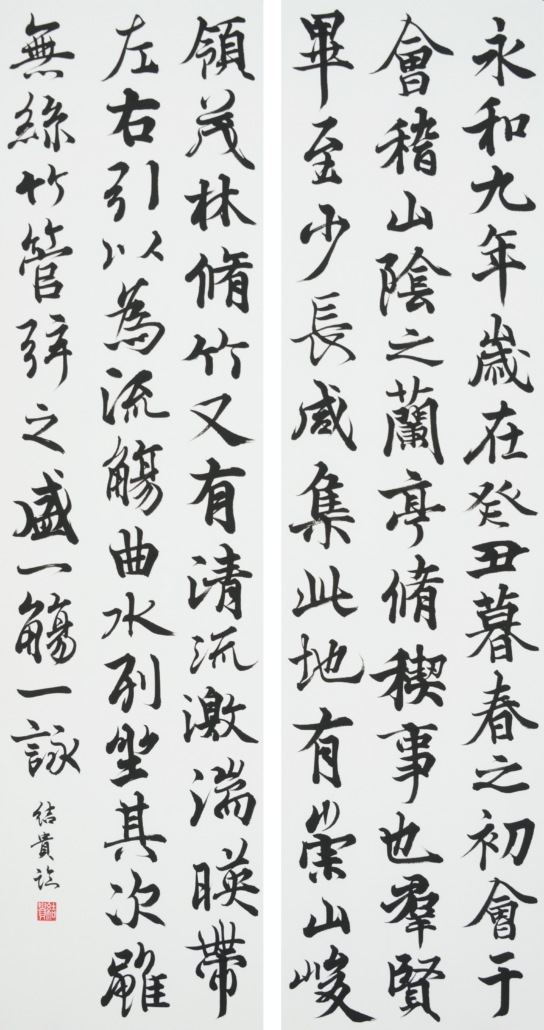 永和九年歲在癸丑暮春之初會于
會稽山陰之蘭亭脩稧事也羣賢
畢至少長咸集此地有崇山峻
領茂林脩竹又有清流激湍暎帶
左右引以為流觴曲水列坐其次雖
無絲竹管弦之盛一觴一詠
結貴臨